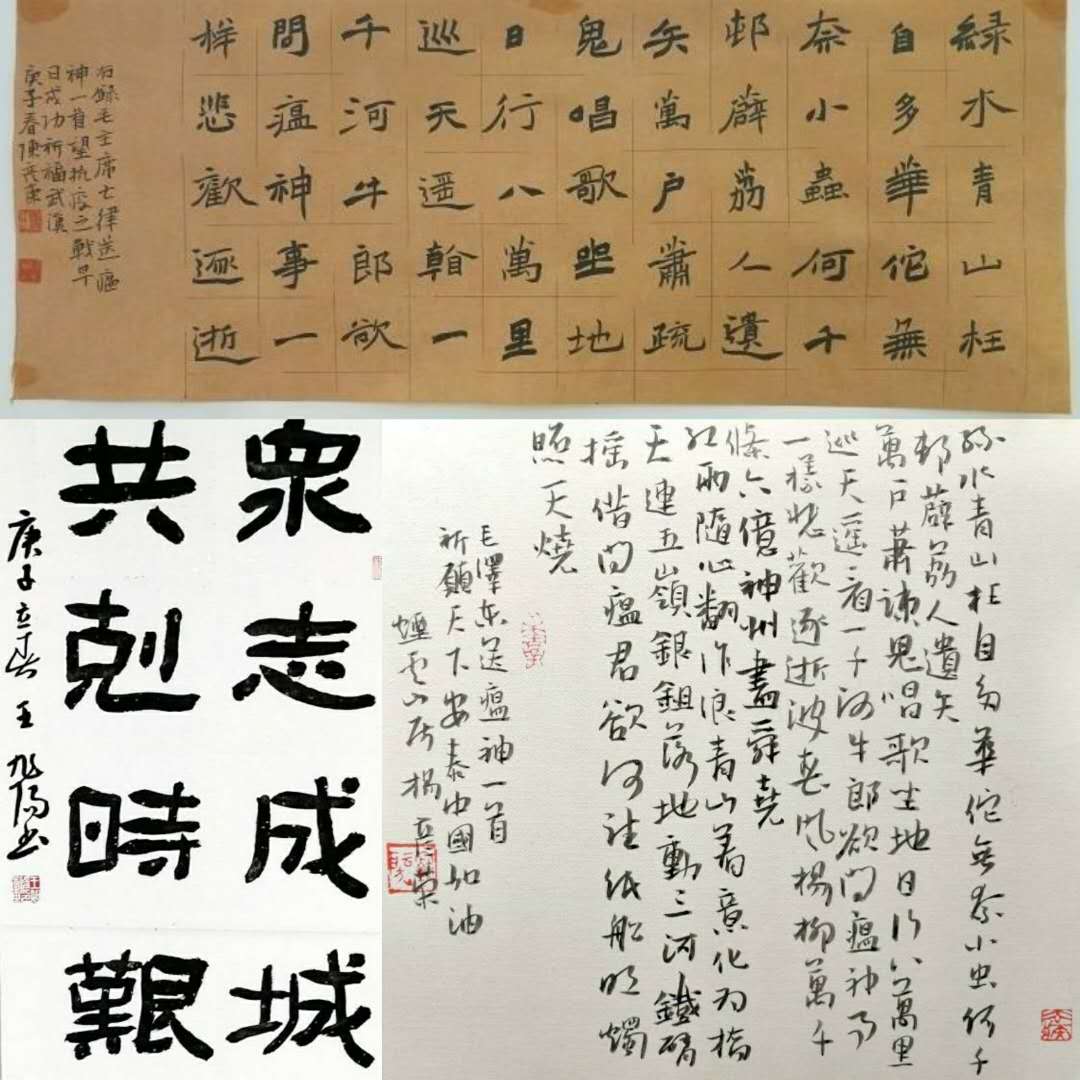 緑水青山枉
自多華佗無
奈小蟲何千
邨薜荔人遺
矢萬戶蕭疏
鬼唱歌坐地
日行八萬里
巡天遥一
千河牛郎欲
問瘟神事一
樣悲歡逐逝
右録毛主席七律送瘟
神一首望抗疫之戰早
日成功祈福武漢
庚子春陳
眾志成城
共剋時艱
庚子立春王旭陽书
緑水青山枉自多華佗無奈小虫何千
邨薜荔人遺矢
萬戶蕭疎鬼唱歌坐地日行八萬里
巡天遥看一千河牛郎欲问瘟神事
一樣悲歡逐逝波春风楊柳萬千
條六億神州盡舜堯
红雨隨心翻作浪青山着意化为橋
天連五嶺銀鋤落地動三河鐵臂
摇借问瘟君欲何往纸船明燭
照天燒
毛澤东送瘟神一首
祈願天下安泰中國加油
煙雲山居楊